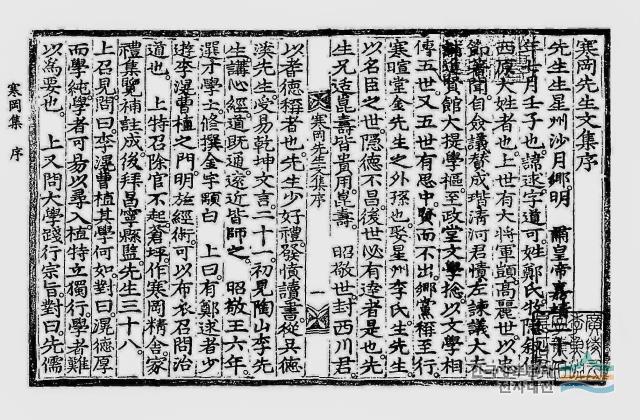 寒岡先生文集序
先生生星州沙月鄉明 肅皇帝嘉靖
年七月壬子也諱逑字道可姓鄭氏
西原大姓者也上世有大將軍顗高麗世以
節著聞自僉議贊成瑎清河君㥽左諫議大夫
誧進賢館大提學樞至政堂文學摠以文學相
傳五世又五世有思中賢而不出鄉黨稱至行
寒暄堂金先生之外孫也娶星州李氏生先生
以名臣之世隱德不昌後世必有達者是也先
生兄适崑壽皆貴用崑壽 昭敬世封西川君
寒岡先生文集序 一
以耆德稱者也先生少好禮發憤讀書從吳德
溪先生受易乾坤文言二十一初見陶山李先
生講心經道旣通遠近皆師之 昭敬王六年
選才學士修撰金宇顒白 上曰有鄭逑者少
遊李滉曹植之門明於經術可以布衣召問治
道也 上特召除官不起蒼坪作寒岡精舍家
禮集覽補註成後拜昌寧縣監先生三十八
上召見問曰李滉曹植其學何如對曰滉德厚
而學純學者可易以尋入植特立獨行學者難
以爲要也 上又問大學踐行宗旨對曰先儒
寒岡集 序